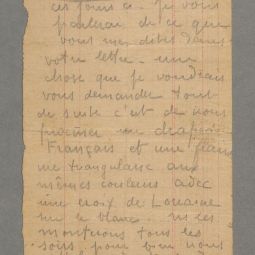 ces jours ci. Je vous
parlerai de ce que
vous me dites dans
votre lettre. une
chose que je voudrais
vous demander tout
de suite c'est de nous
procurer un drapeau
Français et une flamme
triangulaire aux
mêmes couleurs avec
une croix de Lorraine
sur le blanc. nous les
monterons tous les
soirs pour bien nous